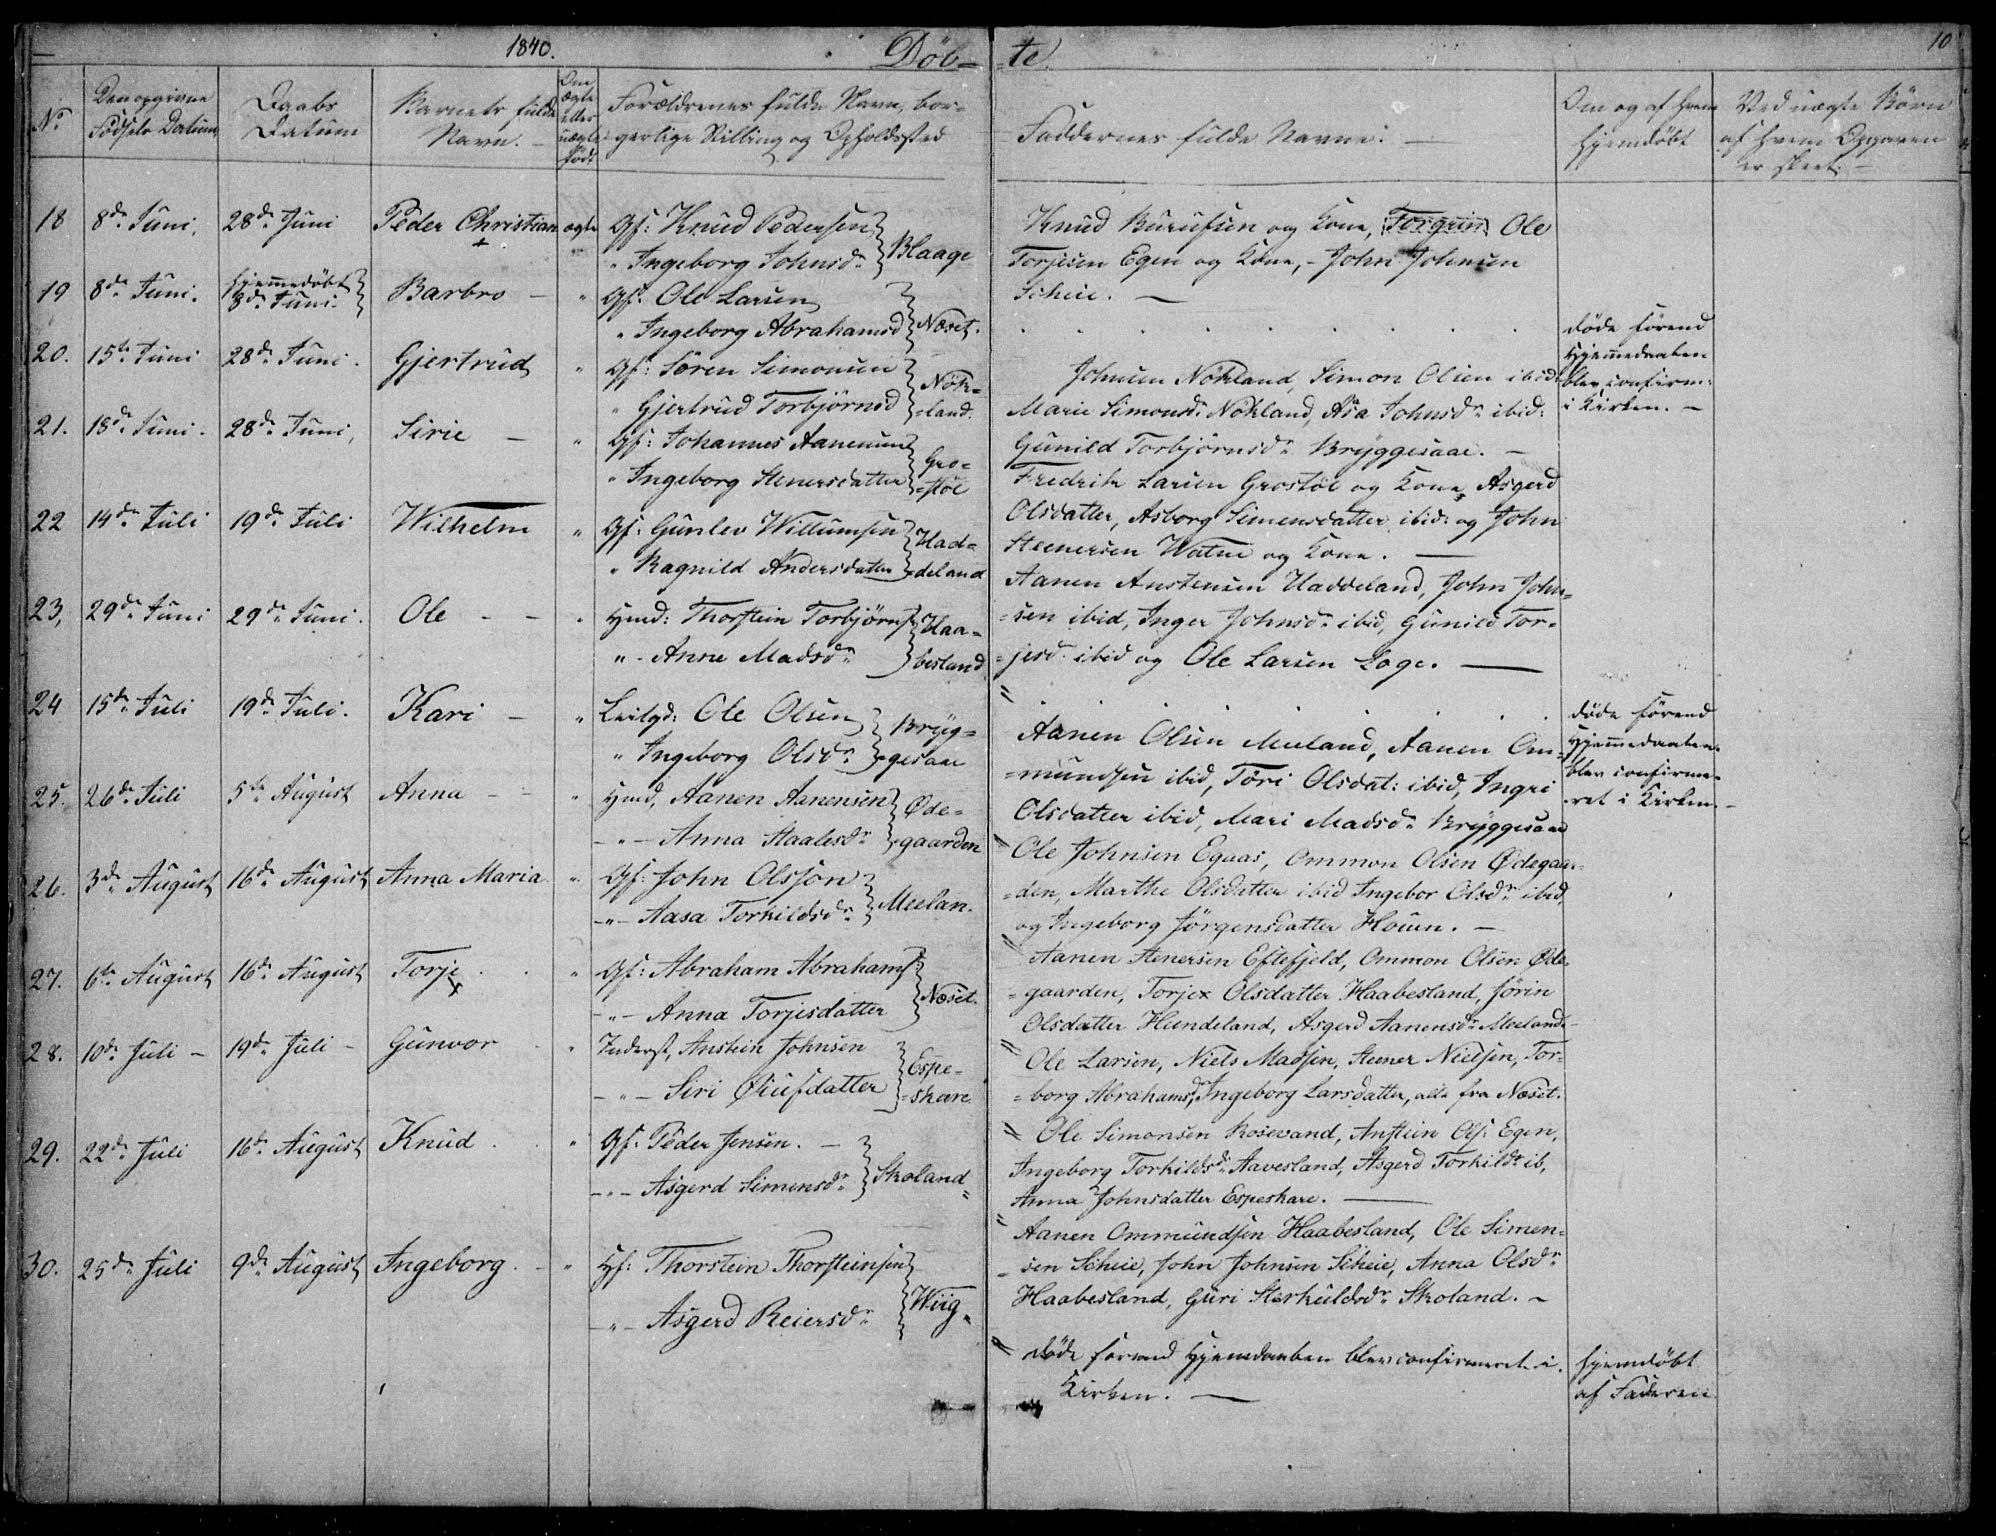 1840.
Döb- -te.
10
No
Den opgivne
Fødsels Datum
Daabs
Datum
Barnets fulde
Navn. -
Om
ægte
eller
uægte
født
Forældrenes fulde Navn, bor-
gerlige Stilling og Opholdssted
Faddernes fulde Navne: -
Om og af hvem
hjemdøbt
Ved uægte Börn
af hvem Opgaven
er skeet. -
18 8de Juni. 28de Juni Peder Christian ægte Gf: Knud Pedersen
" Ingeborg Johnsdr Blaage
Knud og Kone, Torgrim Ole
Torjesen Egen og Kone, - John Johnsen
Scheie. -
19 8de Juni. hjemmedøbt
8de Juni. Barbro - " Gf: Ole Larsen
" Ingeborg Abrahamsd Næset.
døde förend
Hjemmedaaben
blev confirm:
i Kirken. -
20. 15de Juni 28de Juni. Gjertrud " Gf: Sören Simonsen
" Gjertrud Torbjörnsd Nök-
-land.
Johnsen Nökland, Simon Olsen ibid:
Marie Simonsdr Nökland, Asa Johnsdr ibid:
Gunild Torbjörnsdr Bryggesaae. -
21. 18de Juni. 28de Juni, Sirie - " Gf: Johannes Aanensen
" Ingeborg Stenersdatter Gro-
-stöl
Fredrik Larsen Grostöl og Kone, Asgerd
Olsdatter, Asborg Simensdatter ibid: og John
Steenersen Watne og Kone. -
22 14de Juli 19de Juli Wilhelm " Gf: Gunlev Willumsen
" Ragnild Andersdatter Had-
-deland
Aanen Anstensen Haddeland, John John-
-sen ibid, Inger Johnsdr ibid, Gunild Tor-
-jesd. ibid og Ole Larsen Loge. -
23, 29de Juni 29de Juni. Ole - - " Hmd: Thorstein Torbjörns
" - Anne Madsdr Haa-
besland
døde förend
Hjemmedaaben
blev confirme-
-ret i Kirken. -
24 15de Juli 19de Juli. Kari - " Leilgd: Ole Olsen
" Ingeborg Olsdr Bryg-
-gesaae
Aanen Olsen Meeland, Aanen Om-
-mundsen ibid, Töri Olsdat: ibid, Ingri
Olsdatter ibid, Mari Madsdr Bryggesaae
25. 26de Juli 5te August Anna - - " Hmd, Aanen Aanensen
- " - Anna Staalesdr Øde-
-gaarden
Ole Johnsen Egaas, Ommon Olsen Ødegaar-
-den, Marthe Olsdatter ibid Ingebor Olsdr ibid
og Ingeborg Jörgensdatter Houen. -
26. 3de August 16de August Anna Maria " Gf: John Olsson
- " - Aasa Torkildsdr Meelan.
Aanen Stenersen Eftefjeld, Ommon Olsen Øde-
-gaarden, Torjer Olsdatter Haabesland, Jörin
Olsdatter Hundeland, Asgerd Aanensdr Meeland. -
27. 6te August 16de August Torje . " Gf: Abraham Abrahams
- " - Anna Torjesdatter Næset.
Ole Larsen, Niels Madsen, Steener Nielsen, Tor-
-borg Abrahamsd, Ingeborg Larsdatter, alle fra Næset.
28. 10de Juli - 19de Juli - Gunvor . " Inderst, Anstein Johnsen
- " - Siri Øiufsdatter Espe-
-skare
Ole Simonsen Rosevand, Anstein Ols: Egen,
Ingeborg Torkildsdr Aavesland, Asgerd Torkildsdr ib,
Anna Johnsdatter Espeskare. -
29. 22de Juli 16de August Knud . " Gf: Peder Jensen. -
- " - Asgerd Simensdr Skoland
Aanen Ommundsen Haabesland, Ole Simen-
-sen Scheie, John Johnsen Scheie, Anna Olsdr
Haabesland, Guri Sterkuldsdr Skoland. -
30. 25de Juli 9de August Ingeborg. - " Hf: Thorstein Thorsteinsen
- " - Asgerd Reiersdr Wiig
döde forend Hjemdaaben blev confirmeret i
Kirken. -
hjemdöbt
af Faderen.